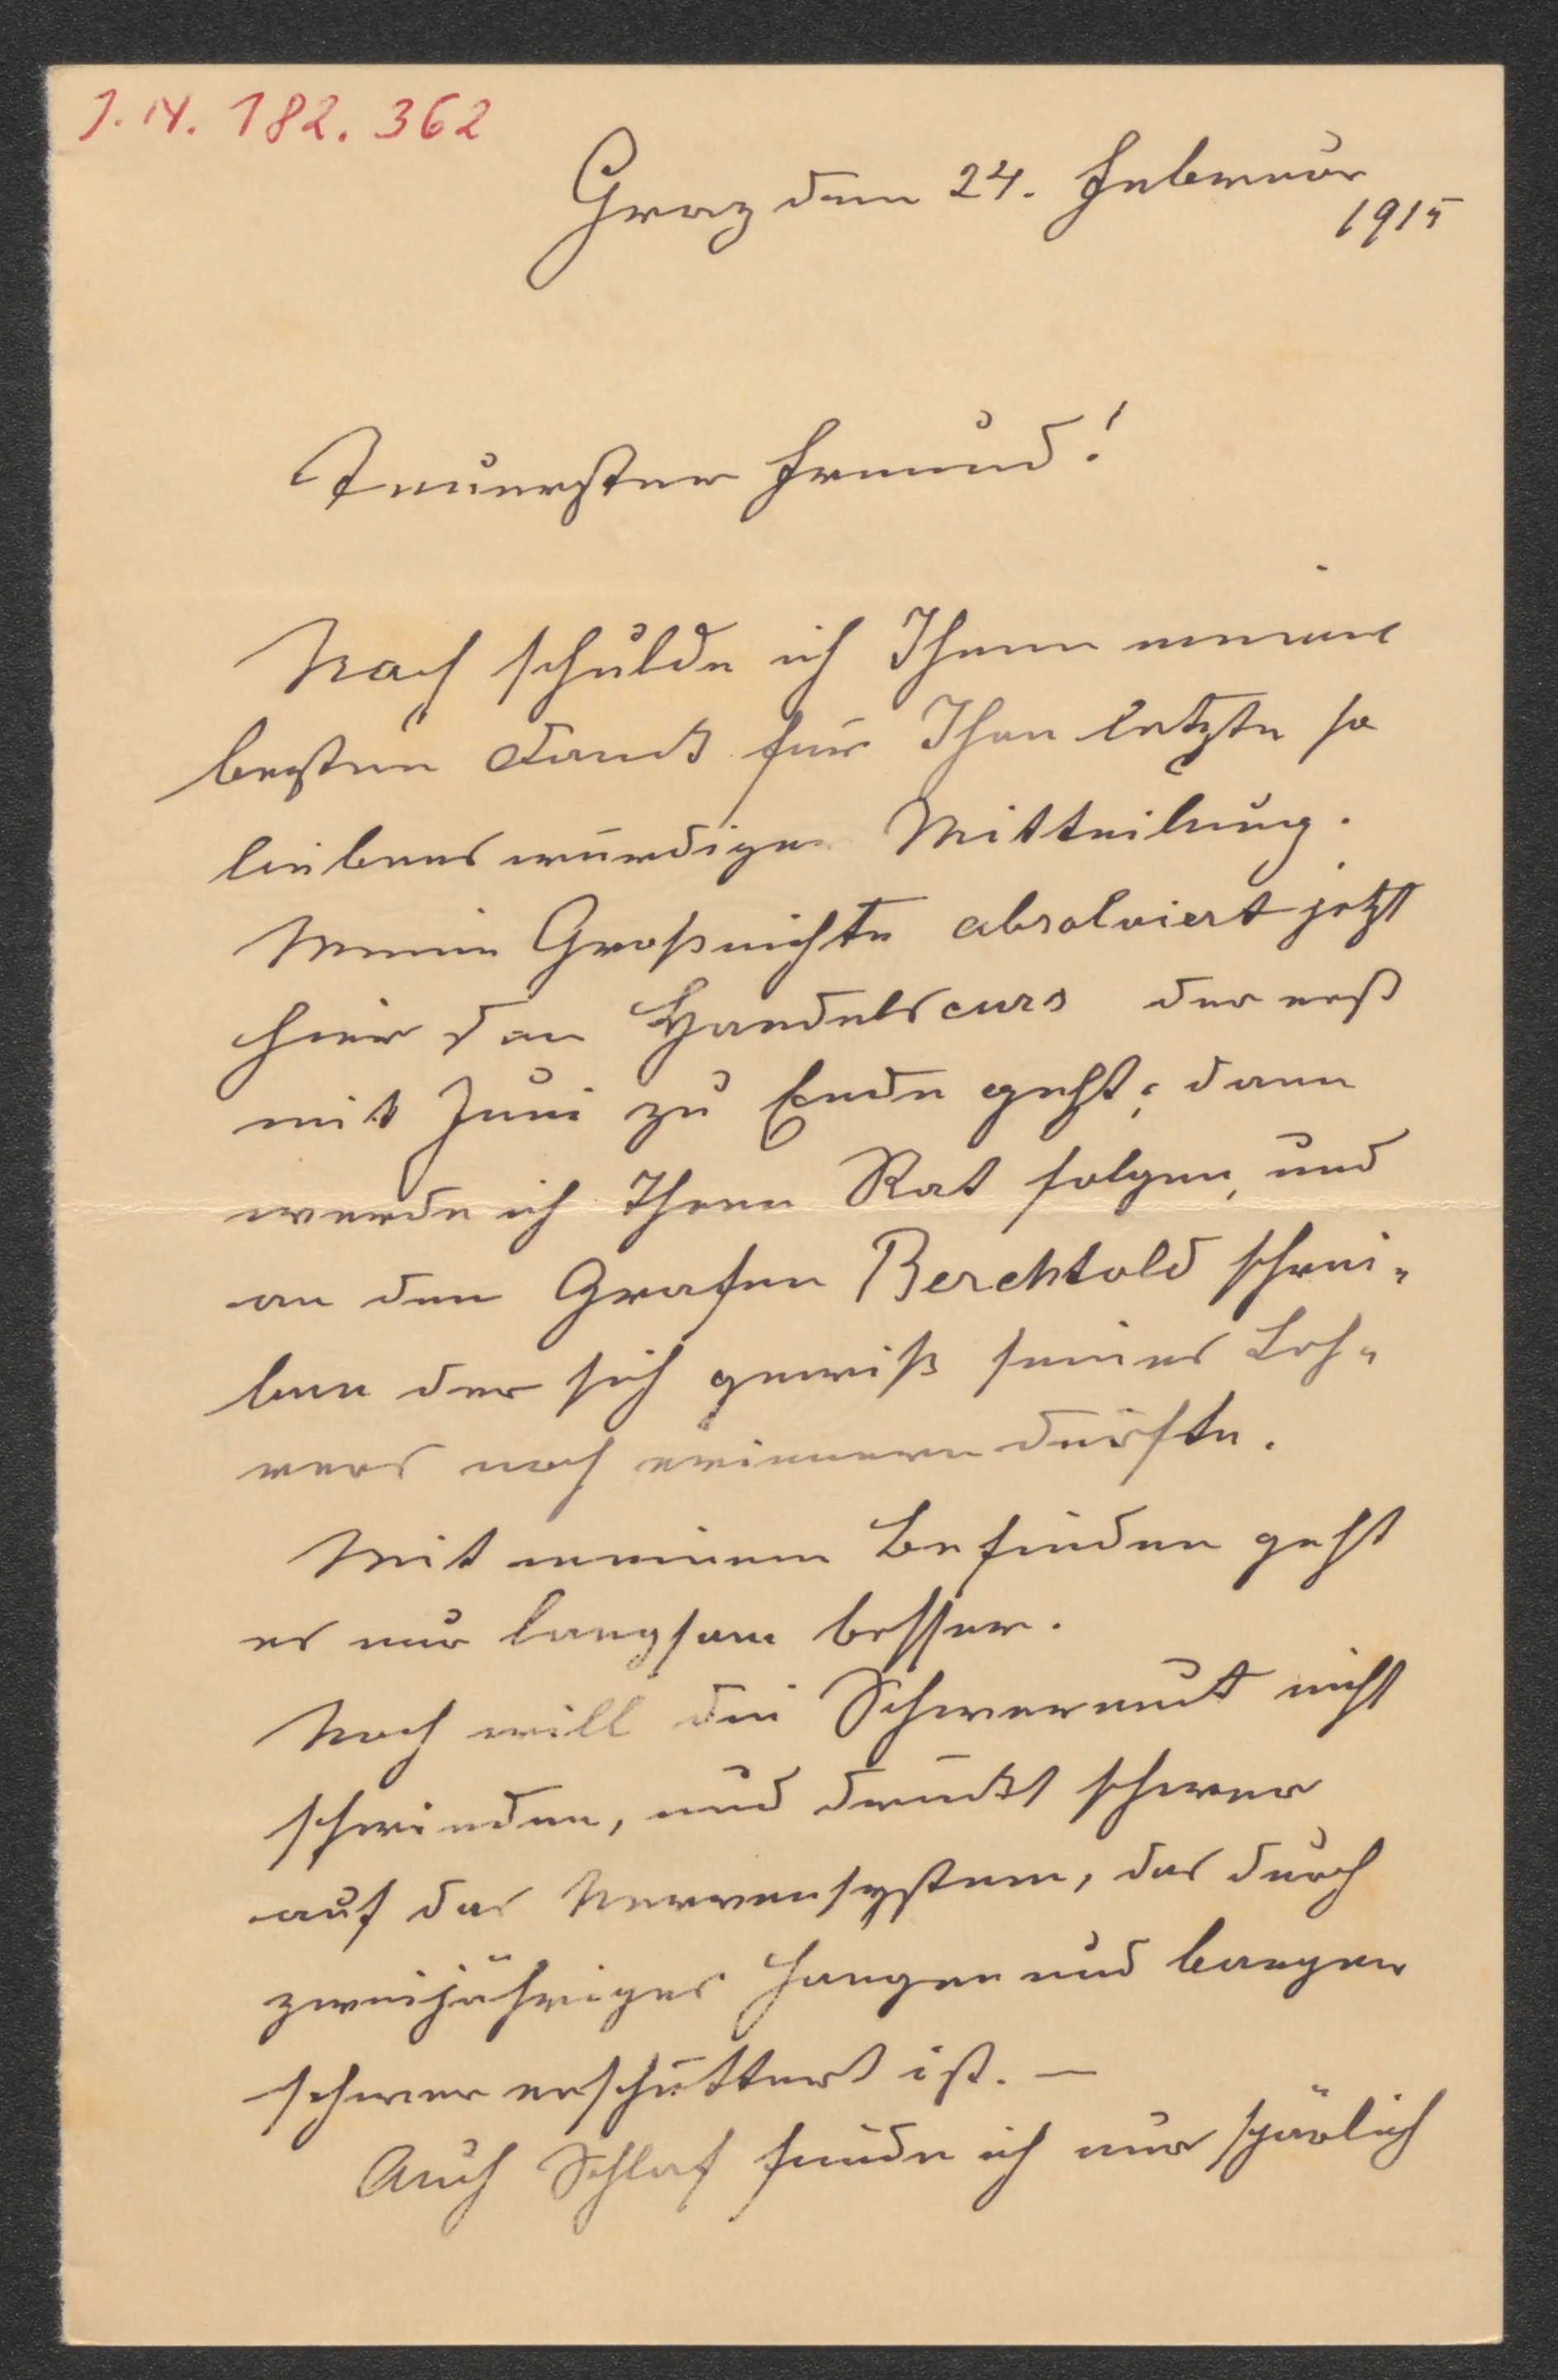 J.N. 182.362
Graz den 24. Februar
1915
Teuerster Freund!
Noch schulde ich Ihnen meinen
besten Dank für Ihre letzte so
liebenswürdige Mitteilung.
Meine Großnichte absolviert jetzt
hier den Handelscurs der erst
mit Juni zu Ende geht; dann
werde ich Ihren Rat folgen, und
an den Grafen Berchtold schrei-
ben der sich gewiß seines Leh-
rers noch erinnern dürfte.
Mit meinem Befinden geht
es nur langsam besser.
Noch will die Schwermut nicht
schwinden, und drückt schwer
auf das Nervensystem, das durch
zweijähriges Hangen und bangen
schwer erschüttert ist. —
Auch Schlaf finde ich nur spärlich